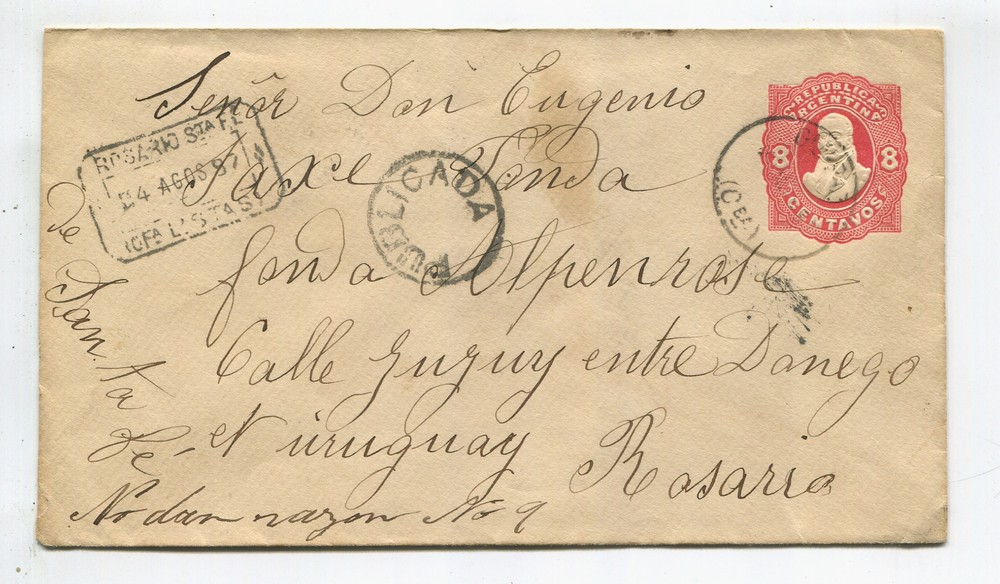 Señor Don Eugenio
Saxe Vanda
fonda Alpenrose
Calle Jujuy entre Donego
y uruguay
Rosario
de San.ta Fé
No dan razon No 9
ROSARIO STA FE
24 AGOS 87
PUBLICADA
REPUBLICA
ARGENTINA
8 8
CENTAVOS
(CBA)